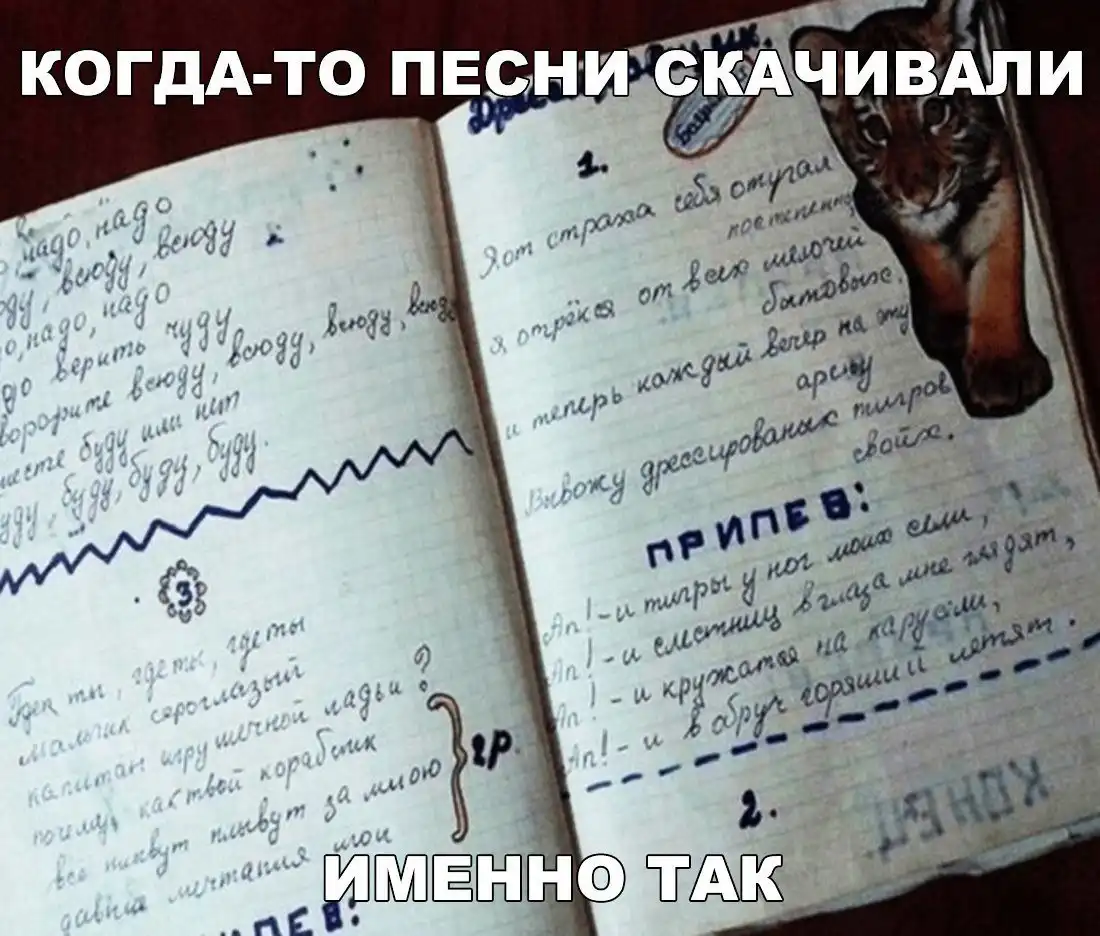 КОГДА-ТО ПЕСНИ СКАЧИВАЛИ
надо, надо
всюду, всюду
надо, надо
верить чуду
всюду, всюду, всюду, всюду
буду или нет
буду, буду, буду.
3
где ты, где ты
мальчик сероглазый
капитан игрушечной ладьи ?
как твой кораблик
все плывут плывут за мною
мечтания мои
2р.
ПРИПЕВ:
1.
Я от страха себя отугал
постепенно,
я отрёкся от всех мелочей
бытовых.
и теперь каждый вечер на эту
арену
Вывожу дрессированых тигров
своих.
ПРИПЕВ:
Ап! - и тигры у ног моих сели,
Ап! - и с лестниц в глаза мне глядят,
Ап! - и кружатся на карусели,
Ап! - и в обруч горящий летят.
2.
КОНЕЦ
ИМЕННО ТАК